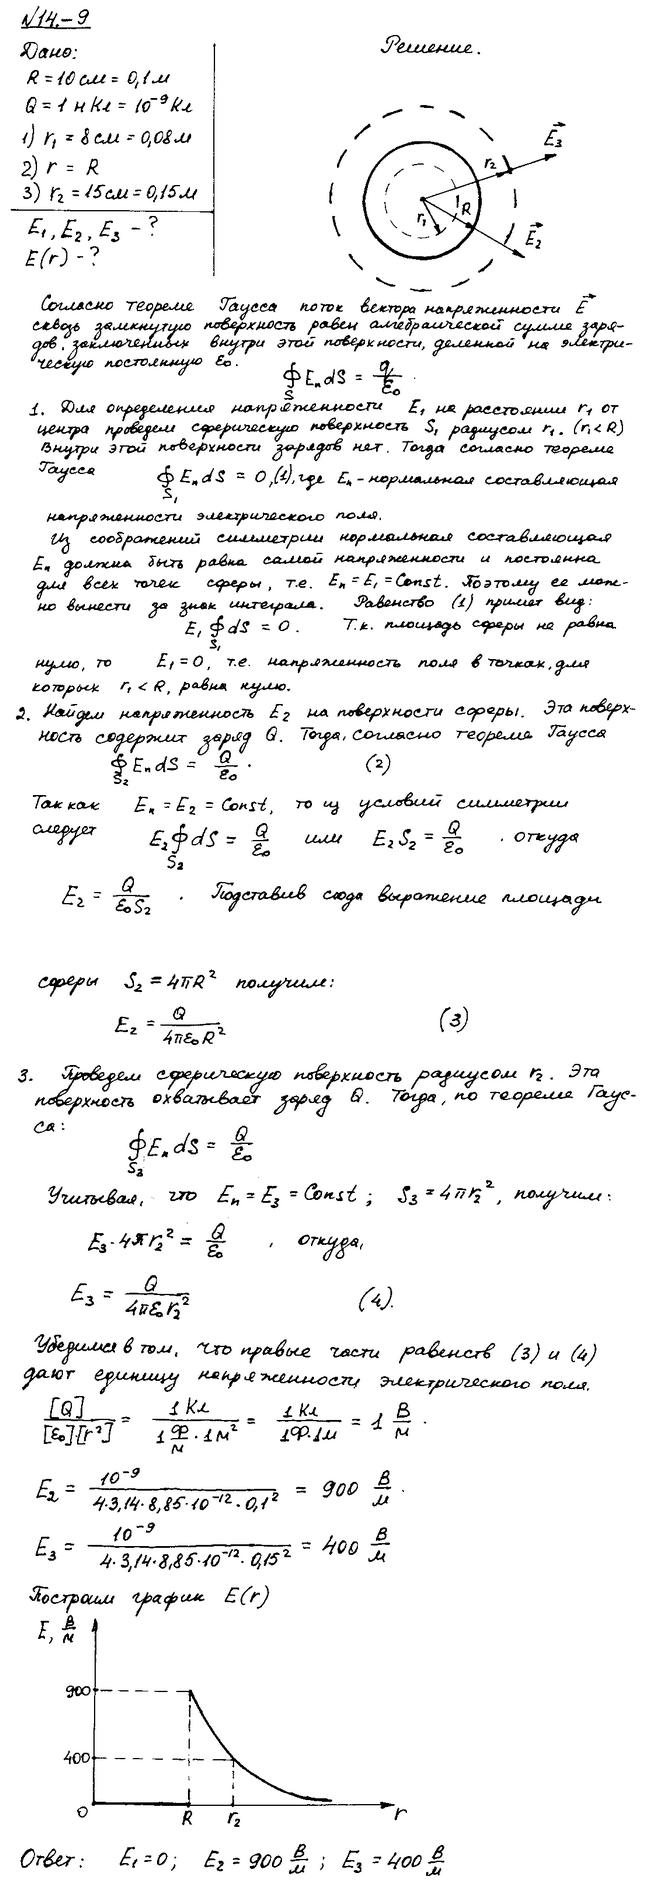 №14.-9
Дано:
Решение.
R = 10 см = 0,1 м
Q = 1 нКл = 10⁻⁹ Кл
1) r₁ = 8 см = 0,08 м
2) r = R
3) r₂ = 15 см = 0,15 м
E₁, E₂, E₃ - ?
E(r) - ?
r₂ E₃
r₁ R
E₂
Согласно теореме Гаусса поток вектора напряженности E
сквозь замкнутую поверхность равен алгебраической сумме заря-
дов, заключенных внутри этой поверхности, деленной на электри-
ческую постоянную ε₀.
∮ Eₙ dS = q/ε₀.
S
1. Для определения напряженности E₁ на расстоянии r₁ от
центра проведем сферическую поверхность S₁ радиусом r₁. (r₁ < R)
Внутри этой поверхности зарядов нет. Тогда согласно теореме
Гаусса ∮ Eₙ dS = 0, (1), где Eₙ - нормальная составляющая
S₁
напряженности электрического поля.
Из соображений симметрии нормальная составляющая
Eₙ должна быть равна самой напряженности и постоянна
для всех точек сферы, т.е. Eₙ = E₁ = Const. Поэтому ее мож-
но вынести за знак интеграла. Равенство (1) примет вид:
E₁ ∮ dS = 0. Т.к. площадь сферы не равна
S₁
нулю, то E₁ = 0, т.е. напряженность поля в точках, для
которых r₁ < R, равна нулю.
2. Найдем напряженность E₂ на поверхности сферы. Эта поверх-
ность содержит заряд Q. Тогда, согласно теореме Гаусса
∮ Eₙ dS = Q/ε₀. (2)
S₂
Так как Eₙ = E₂ = Const, то из условий симметрии
следует E₂ ∮ dS = Q/ε₀ или E₂ S₂ = Q/ε₀ . откуда
S₂
E₂ = Q/(ε₀S₂) . Подставив сюда выражение площади
сферы S₂ = 4πR² получим:
E₂ = Q/(4πε₀R²) (3)
3. Проведем сферическую поверхность радиусом r₂. Эта
поверхность охватывает заряд Q. Тогда, по теореме Гаус-
са:
∮ Eₙ dS = Q/ε₀
S₃
Учитывая, что Eₙ = E₃ = Const; S₃ = 4πr₂², получим:
E₃·4πr₂² = Q/ε₀ , откуда,
E₃ = Q/(4πε₀r₂²) (4).
Убедимся в том, что правые части равенств (3) и (4)
дают единицу напряженности электрического поля.
[Q]/([ε₀][r²]) = 1 Кл/(1 Ф/м · 1 м²) = 1 Кл/(1Ф·1м) = 1 В/м.
E₂ = 10⁻⁹/(4·3,14·8,85·10⁻¹²·0,1²) = 900 В/м.
E₃ = 10⁻⁹/(4·3,14·8,85·10⁻¹²·0,15²) = 400 В/м
Построим график E(r)
E, В/м
900
400
0 R r₂ r
Ответ: E₁ = 0; E₂ = 900 В/м; E₃ = 400 В/м